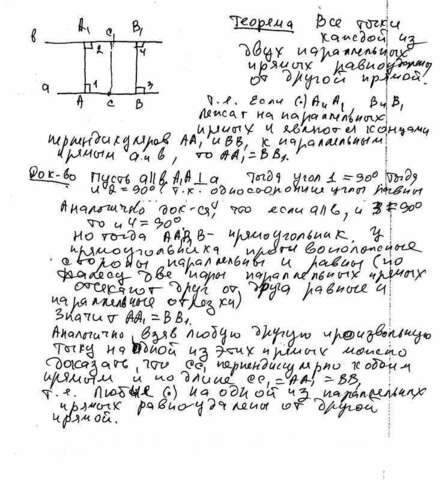 A₁ C₁ B₁
в 2 4
а 1 3
A C B
Теорема Все точки
каждой из
двух параллельных
прямых равноудалены
от другой прямой.
т.е. Если (·) A и A₁, B и B₁
лежат на параллельных
прямых и являются концами
перпендикуляров AA₁ и BB₁ к параллельным
прямым а и в, то AA₁ = BB₁.
Док-во Пусть a||b A₁A⊥a Тогда угол 1 = 90° тогда
и 2 = 90° т.к. односторонние углы равны
Аналогично док-ся, что если a||b, и 3 = 90°
то и 4 = 90°
Но тогда AA₁B₁B - прямоугольник. У
прямоугольника противоположные
стороны параллельны и равны (по
Фалесу две пары параллельных прямых
отсекают друг от друга равные и
параллельные отрезки)
Значит AA₁ = BB₁.
Аналогично взяв любую другую произвольную
точку на одной из этих прямых можно
доказать, что CC₁ перпендикулярно к обоим
прямым и по длине CC₁ = AA₁ = BB₁
т.е. Любые (·) на одной из параллельных
прямых равноудалены от другой
прямой.